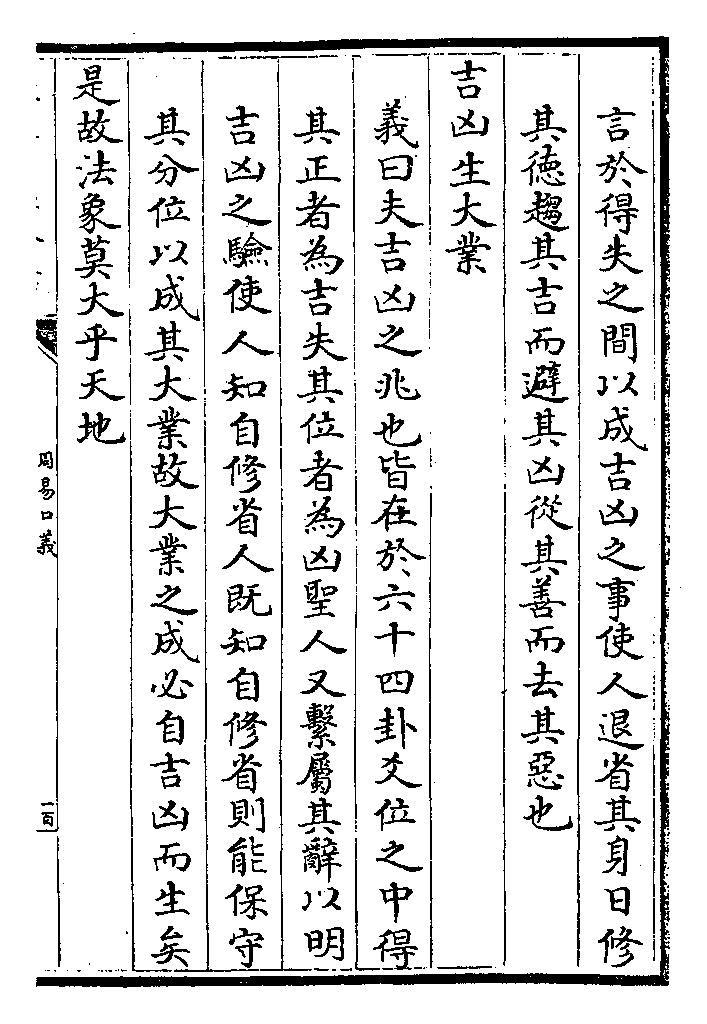 言於得失之間以成吉凶之事使人退省其身日修
其德趨其吉而避其凶從其善而去其惡也
吉凶生大業
義曰夫吉凶之兆也皆在於六十四卦爻位之中得
其正者為吉失其位者為凶聖人又繫屬其辭以明
吉凶之驗使人知自修省人既知自修省則能保守
其分位以成其大業故大業之成必自吉凶而生矣
是故法象莫大乎天地
周易口義
一百